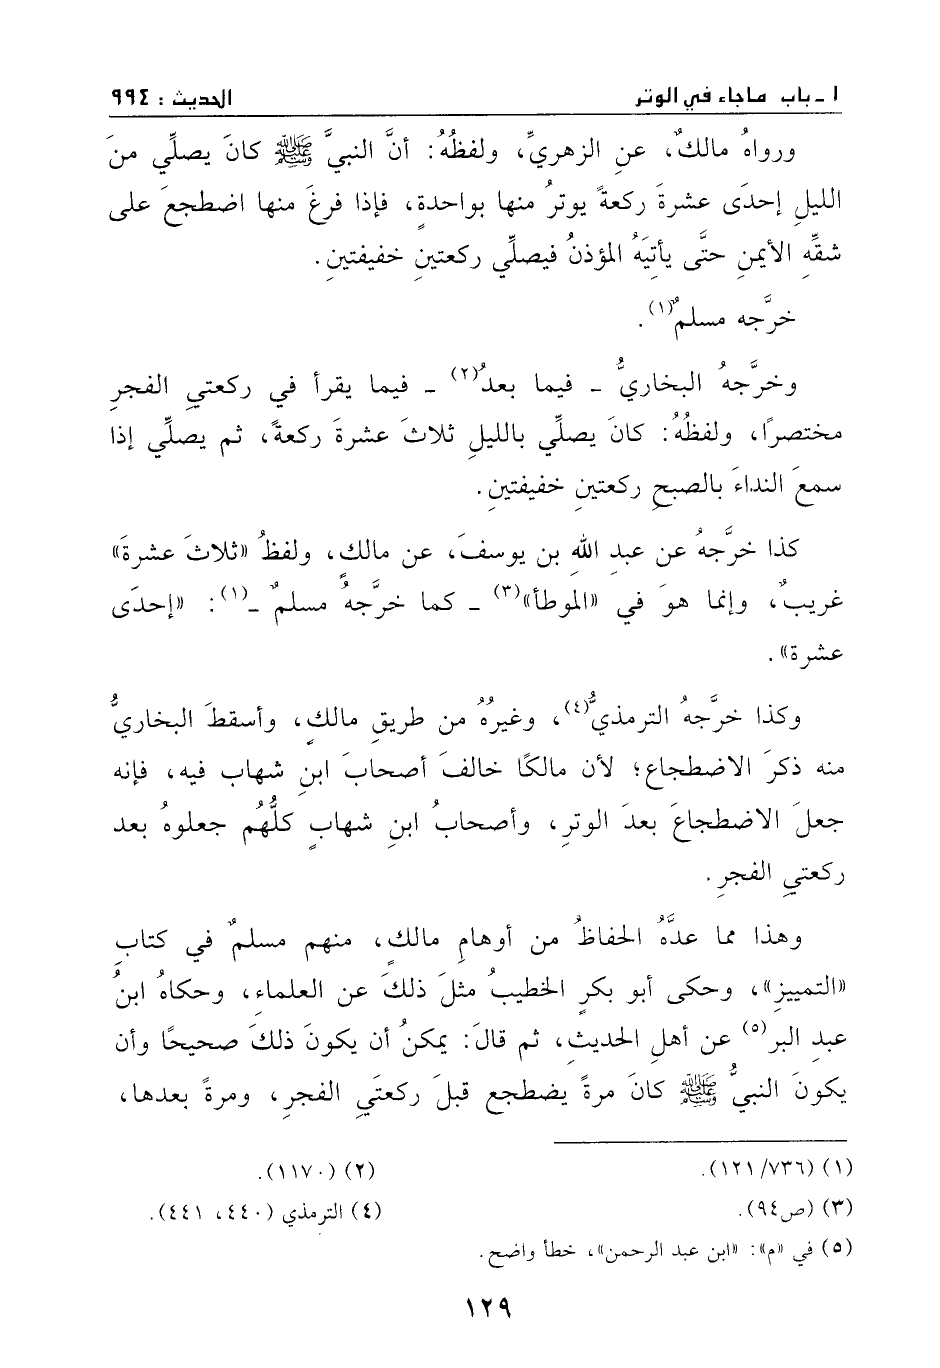 ١ ـ باب ماجاء في الوتر الحديث : ٩٩٤
ورواهُ مالكٌ، عنِ الزهريِّ، ولفظُهُ: أنَّ النبيَّ ﷺ كانَ يصلِّي منَ
الليلِ إحدَى عشرةَ ركعةً يوترُ منها بواحدةٍ، فإذا فرغَ منها اضطجعَ على
شقِّهِ الأيمنِ حتَّى يأتيَهُ المؤذنُ فيصلِّي ركعتينِ خفيفتينِ.
خرَّجه مسلمٌ(١).
وخرَّجهُ البخاريُّ ـ فيما بعدُ(٢) ـ فيما يقرأ في ركعتيِ الفجرِ
مختصرًا، ولفظُهُ: كانَ يصلِّي بالليلِ ثلاثَ عشرةَ ركعةً، ثم يصلِّي إذا
سمعَ النداءَ بالصبحِ ركعتينِ خفيفتينِ.
كذا خرَّجهُ عن عبدِ اللهِ بن يوسفَ، عن مالكٍ، ولفظُ «ثلاثَ عشرةَ»
غريبٌ، وإنما هوَ في «الموطأ»(٣) ـ كما خرَّجهُ مسلمٌ ـ(١): «إحدَى
عشرة».
وكذا خرَّجهُ الترمذيُّ(٤)، وغيرُهُ من طريقِ مالكٍ، وأسقطَ البخاريُّ
منه ذكرَ الاضطجاعِ؛ لأن مالكًا خالفَ أصحابَ ابنِ شهاب فيه، فإنه
جعلَ الاضطجاعَ بعدَ الوترِ، وأصحابُ ابنِ شهابٍ كلُّهُم جعلوهُ بعد
ركعتيِ الفجرِ.
وهذا مما عدَّهُ الحفاظُ من أوهامِ مالكٍ، منهم مسلمٌ في كتابِ
«التمييزِ»، وحكى أبو بكرٍ الخطيبُ مثلَ ذلكَ عن العلماءِ، وحكاهُ ابنُ
عبدِ البر(٥) عن أهلِ الحديثِ، ثم قالَ: يمكنُ أن يكونَ ذلكَ صحيحًا وأن
يكونَ النبيُّ ﷺ كانَ مرةً يضطجع قبلَ ركعتَيِ الفجرِ، ومرةً بعدها،
(١) (٧٣٦/ ١٢١). (٢) (١١٧٠).
(٣) (ص٩٤). (٤) الترمذي (٤٤٠، ٤٤١).
(٥) في «م»: «ابن عبد الرحمن»، خطأ واضح.
١٢٩